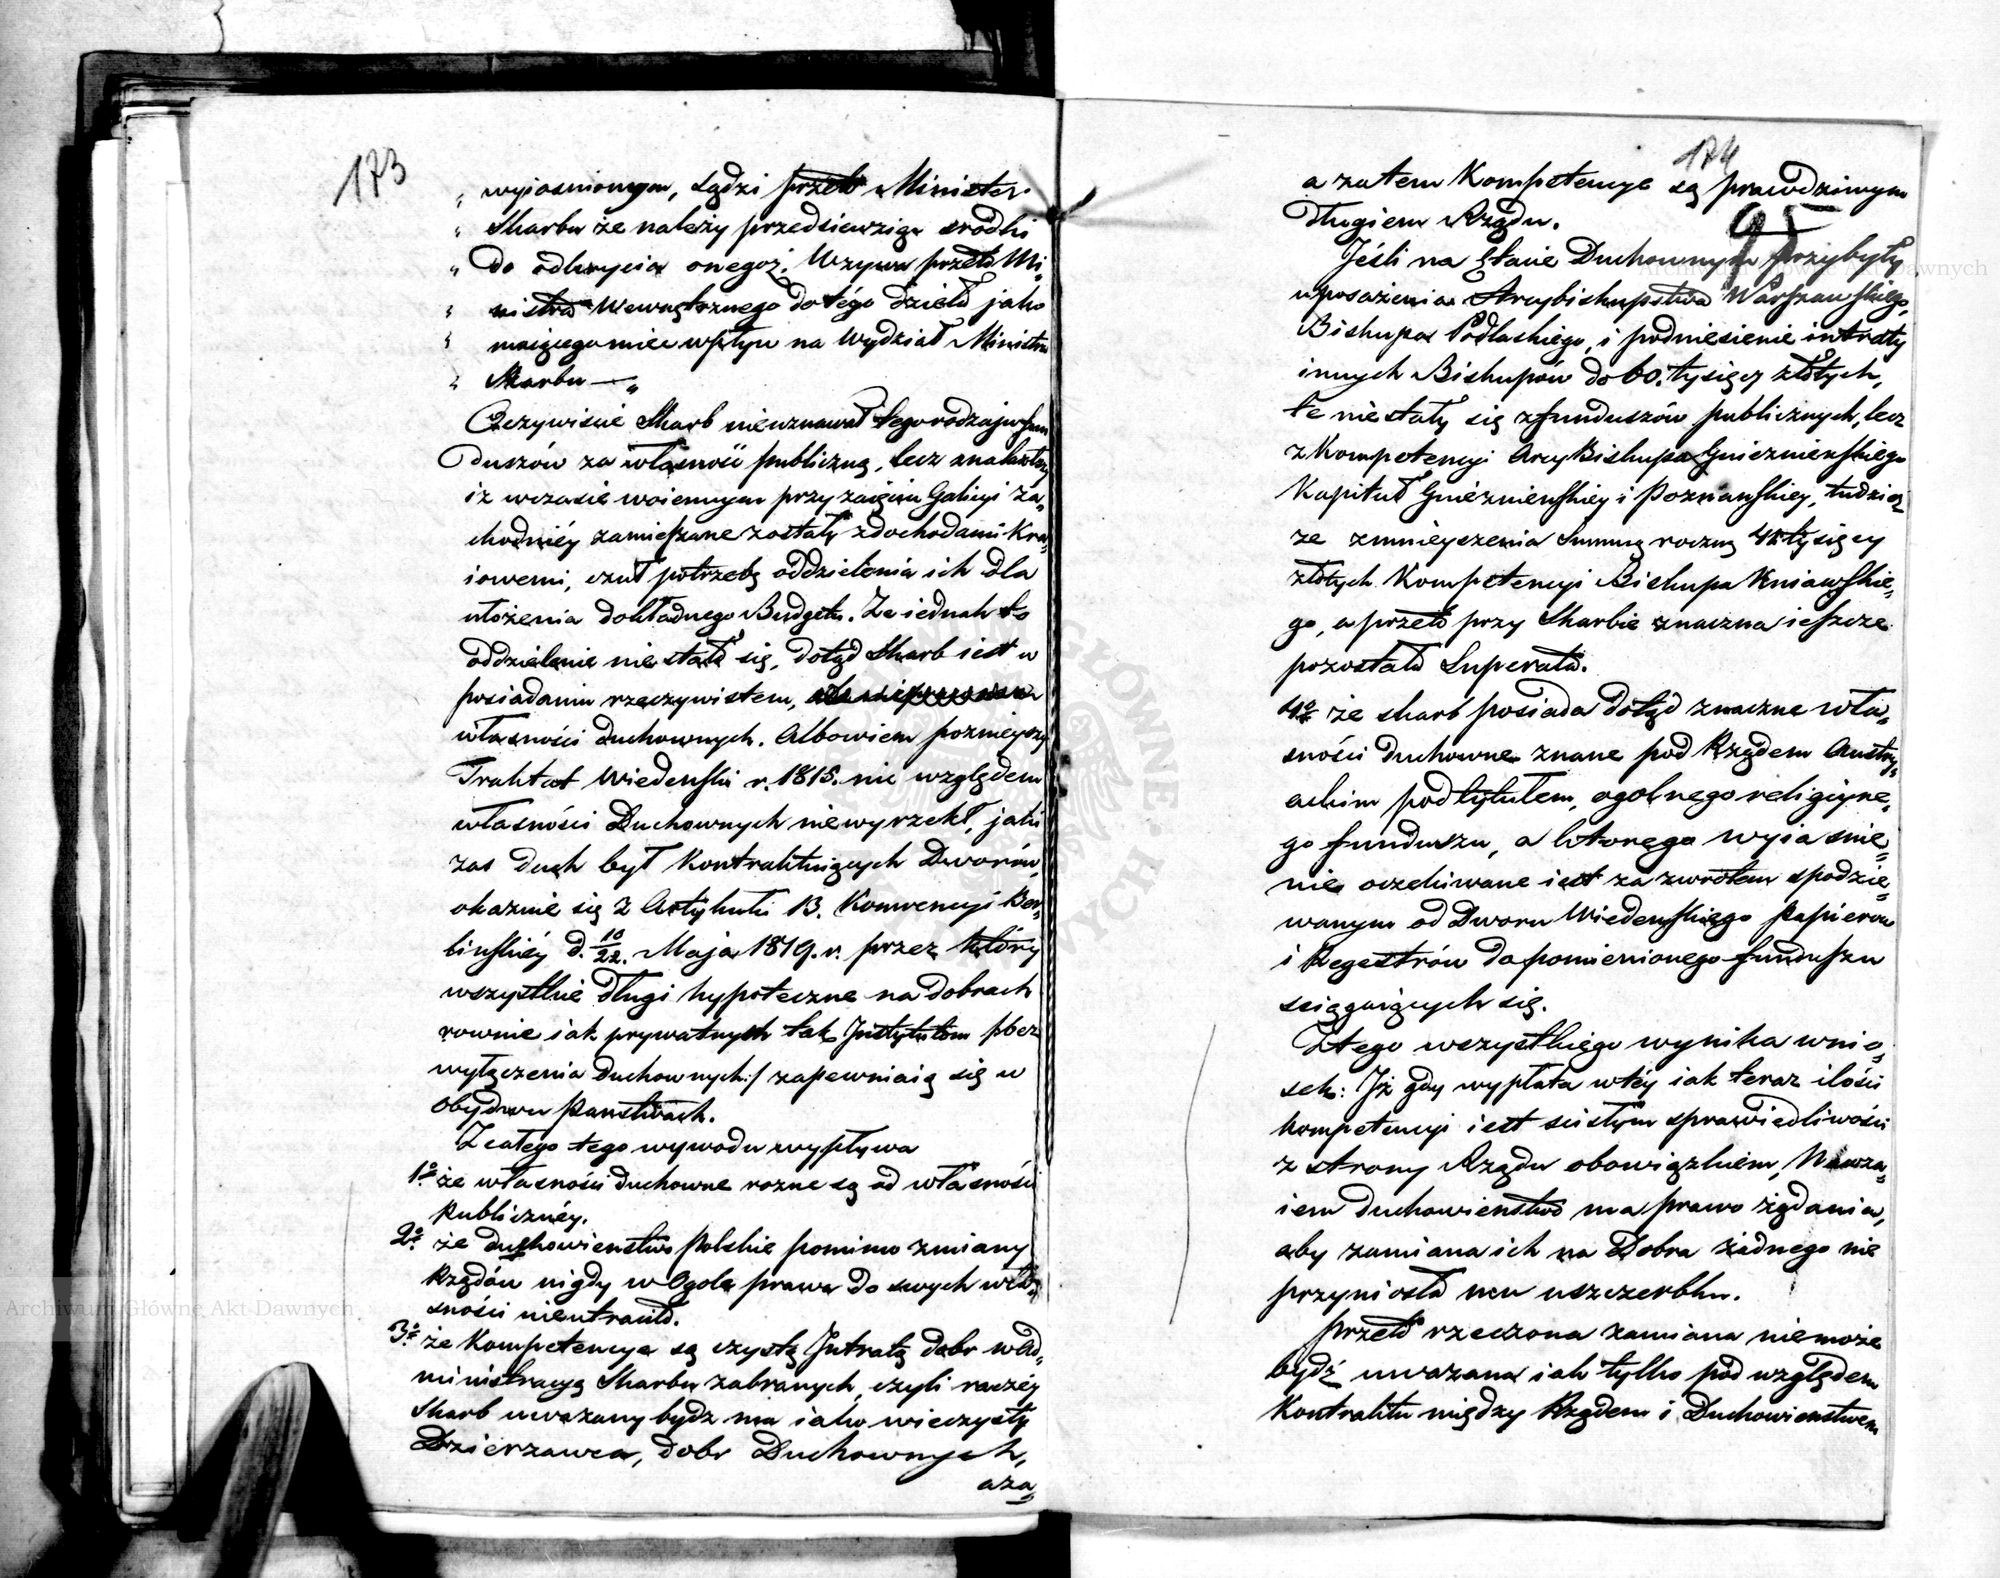 173
„ wyiasnionym, sądzi przeto Minister
„ Skarbu że należy przedsięwziąć srodki
„ do odkrycia onegoż. Wzywa przeto Mi„
„ nistra Wewnętrznego do tégo dzieła jako
„ maiącego mieć wpływ na Wydział Ministra
„ Skarbu —„
Oczywiscie Skarb nieuznawał tego rodzaju fun
duszów za własność publiczną, lecz znalazłszy
iż wczasie woiennym przy zaięciu Galicyi Za„
chodniéy zamieszane zostały zdochodami Kra„
iowemi, czuł potrzebę oddzielenia ich dla
ułożenia dokładnego Budgetu. Że iednak to
oddzielenie nie stało się, dotąd Skarb iest w
posiadaniu rzeczywistem,
własności duchownych. Albowiem poznieyszy
Traktat Wiedenski r. 1815. nic względem
własności Duchownych niewyrzekł, jaki
zas duch był Kontraktuiących Dworów,
okazuie się z Artykułu 13. Konwencyi Ber„
linskiéy d. 10/22. Maja 1819. r. przez który
wszystkie długi hypoteczne na dobrach
rownie iak prywatnych tak Instytutom /:bez
wyłączenia duchownych:/ zapewniaią się w
obydwu Panstwach.
Z całego tego wywodu wypływa
1º że własności duchowne rozne są od własności
Publicznéy.
2º że duchowienstwo Polskie pomimo zmiany
Rządów nigdy w Ogole prawa do swych wła„
sności nieutraciło.
3º że Kompetencye są czystą Intratą dobr w Ad„
ministracyą Skarbu zabranych, czyli raczéy
Skarb uwazany bydz ma iako wieczysty
Dzierzawca, dobr Duchownych,
aza„
174
95
a zatem Kompetencye są prawdziwym
długiem Rządu.
Jeśli na Etacie Duchownym przybyły
uposażenia Arcybiskupstwa Warszawskiego,
Biskupa Podlaskiego, i podniesienie intraty
innych Biskupów do 60. tysięcy złotych,
te niestały się zfunduszów publicznych, lecz
z Kompetencyi Arcy Biskupa Gnieznienskiego
Kapituł Gnieznienskiey i Poznanskiey, tudziez
ze zmnieyszenia Summą roczną 42 tysięcy
złotych Kompetencyi Biskupa Kuiawskie„
go, a przeto przy Skarbie znaczna ieszcze
pozostała Superata.
4º że skarb posiada dotąd znaczne wła„
sności duchowne znane pod Rządem Austry„
ackim pod tytułem, ogolnego religiyne„
go funduszu, a ktorego wyiasnie„
nie oczekiwane iest za zwrotem spodzie„
wanym od Dworu Wiedenskiego Papierow
i Regestrów do pomienionego funduszu
sciągaiących się.
Z tego wszystkiego wynika wnio„
sek: Iż gdy wypłata wtéy iak teraz ilości
kompetencyi iest scisłym sprawiedliwości
z strony Rządu obowiązkiem, Nawza„
iem duchowienstwo ma prawo żądania,
aby zamiana ich na Dobra żadnego nie
przyniosła mu uszczerbku.
Przeto rzeczona zamiana niemoże
bydź uwazana iak tylko pod względem
Kontraktu między Rządem i Duchowienstwem
Archiwum Główne Akt Dawnych
Archiwum Główne Akt Dawnych